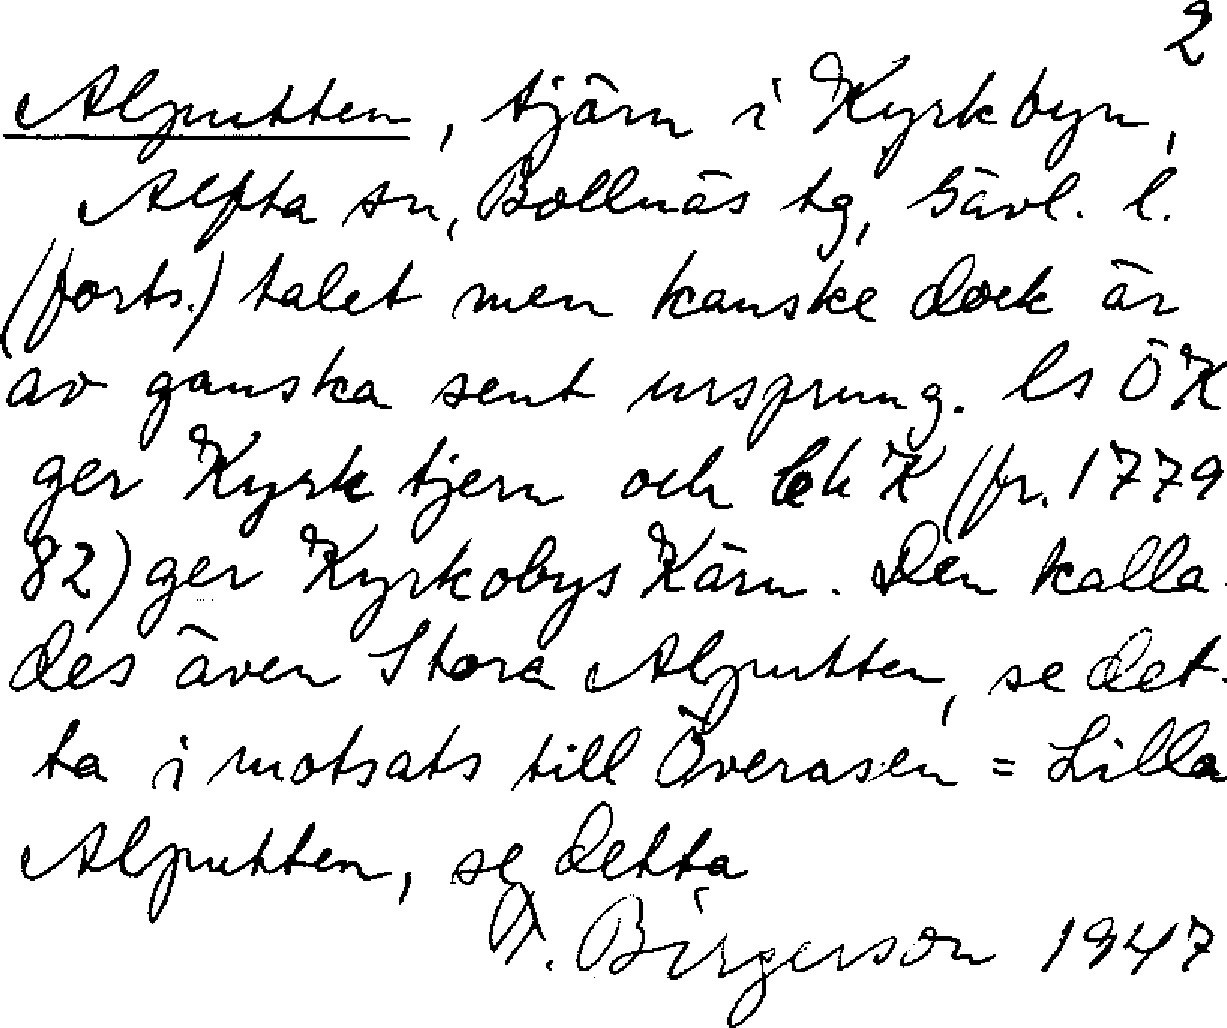 2
Alputten, tjärn i Kyrkbyn,
Alfta sn, Bollnäs tg, Gävl. l.
(forts.) talet men kanske dock är
av ganska sent ursprung. Gs ÖK
ger Kyrktjern och EkK (fr. 1779
82) ger Kyrkobys Kärn. Den kalla-
des även Stora Alputten, se det-
ta i motsats till Överåsen = Lilla
Alputten, se detta
Birgerson 1947